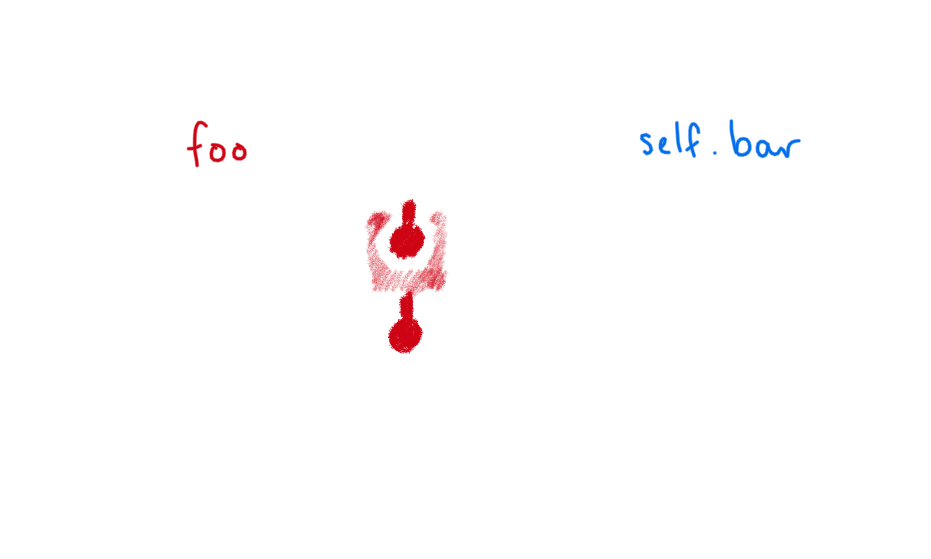 foo
self.bar